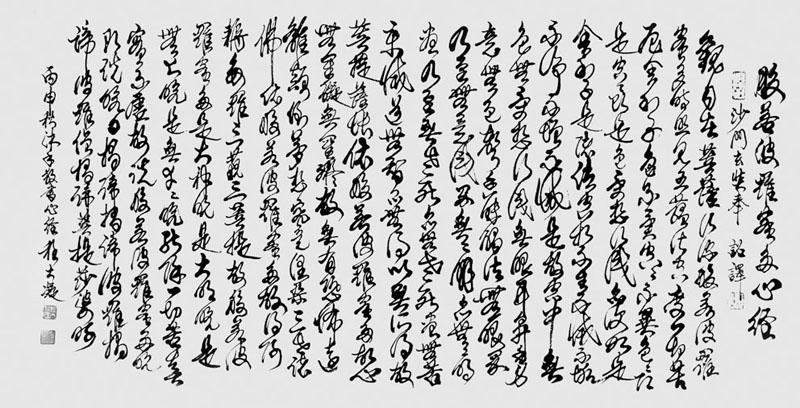 般若波羅蜜多心經
沙門玄奘奉 詔譯
觀自在菩薩行深般若波羅
蜜多時照見五蘊皆空度一切苦
厄舍利子色不異空空不異色色即
是空空即是色受想行識亦復如是
舍利子是諸法空相不生不滅不垢
不淨不增不減是故空中無
色無受想行識無眼耳鼻舌身
意無色聲香味觸法無眼界
乃至無意識界無無明亦無無明
盡乃至無老死亦無老死盡無苦
集滅道無智亦無得以無所得故
菩提薩埵依般若波羅蜜多故心
無罣礙無罣礙故無有恐怖遠
離顛倒夢想究竟涅槃三世諸
佛依般若波羅蜜多故得阿
耨多羅三藐三菩提故知般若波
羅蜜多是大神咒是大明咒是
無上咒是無等等咒能除一切苦真
實不虛故說般若波羅蜜多咒
即說咒曰揭諦揭諦波羅揭
諦波羅僧揭諦菩提莎婆訶
丙申秋沐手敬書心經